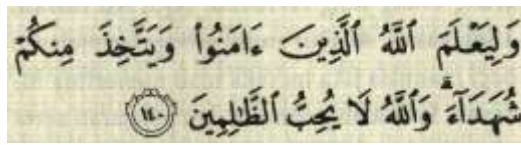 وَلِيَعْلَمَ ٱللَّهُ ٱلَّذِينَ ءَامَنُوا۟ وَيَتَّخِذَ مِنكُمْ
شُهَدَآءَ ۗ وَٱللَّهُ لَا يُحِبُّ ٱلظَّٰلِمِينَ ١٤٠